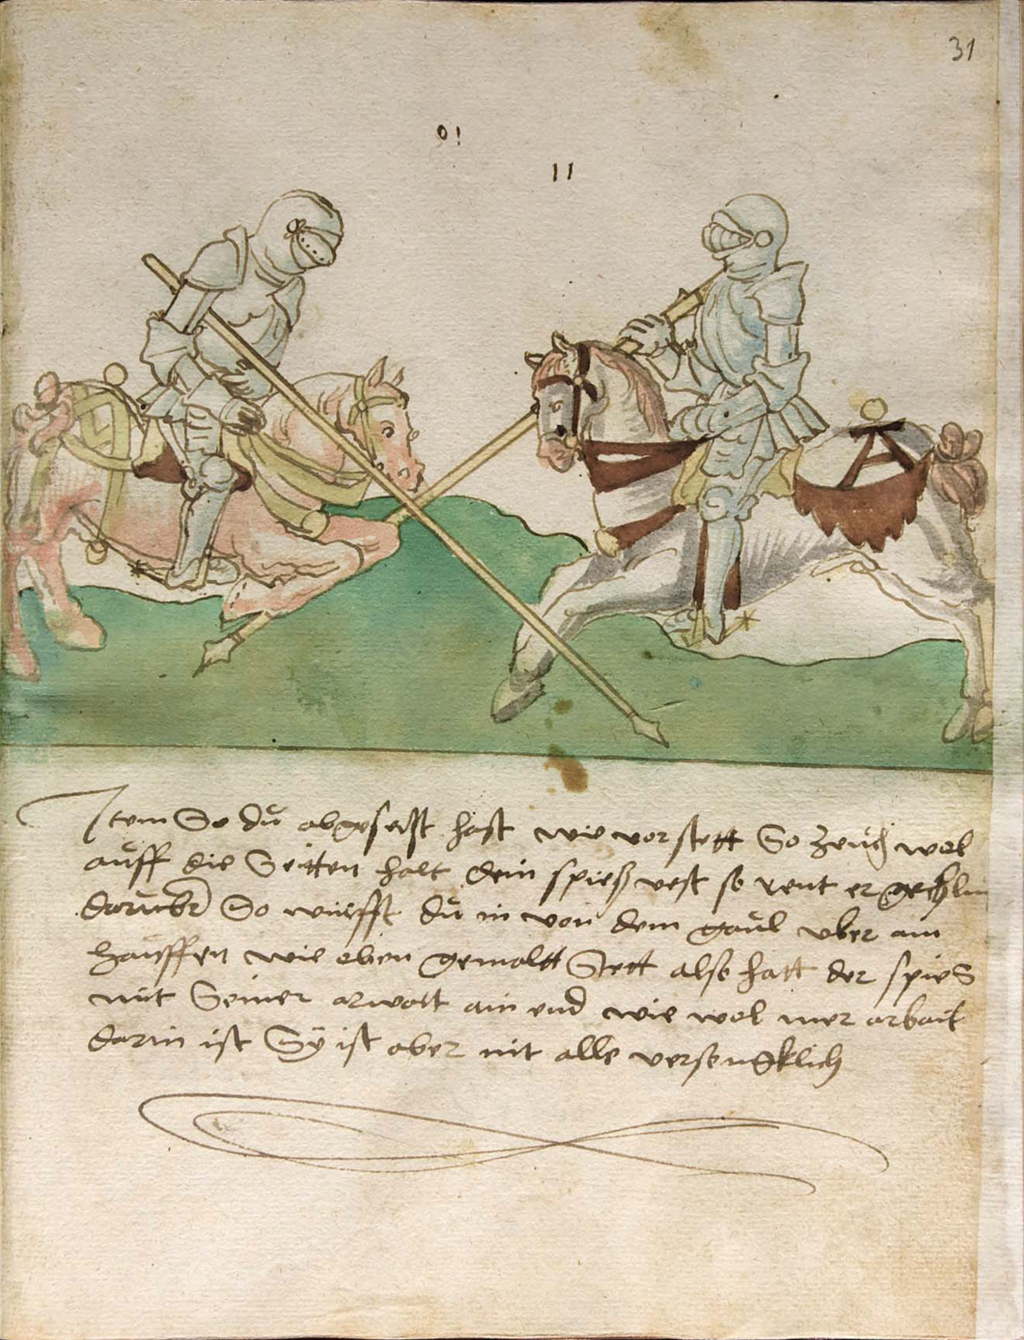 31
9!
11
Item So du abgesetzt hast wie vor stett So zeuch wol
auff die Seitten halt dein spieß vest so rent er gechlin
darüber So würfft dü in von dem gaul uber ain
hauffen wie oben gemoltt Stett also hatt der spies
mit Seiner arwait ain end wie wol mer arbait
darin ist Sÿ ist aber nit alle versengklich